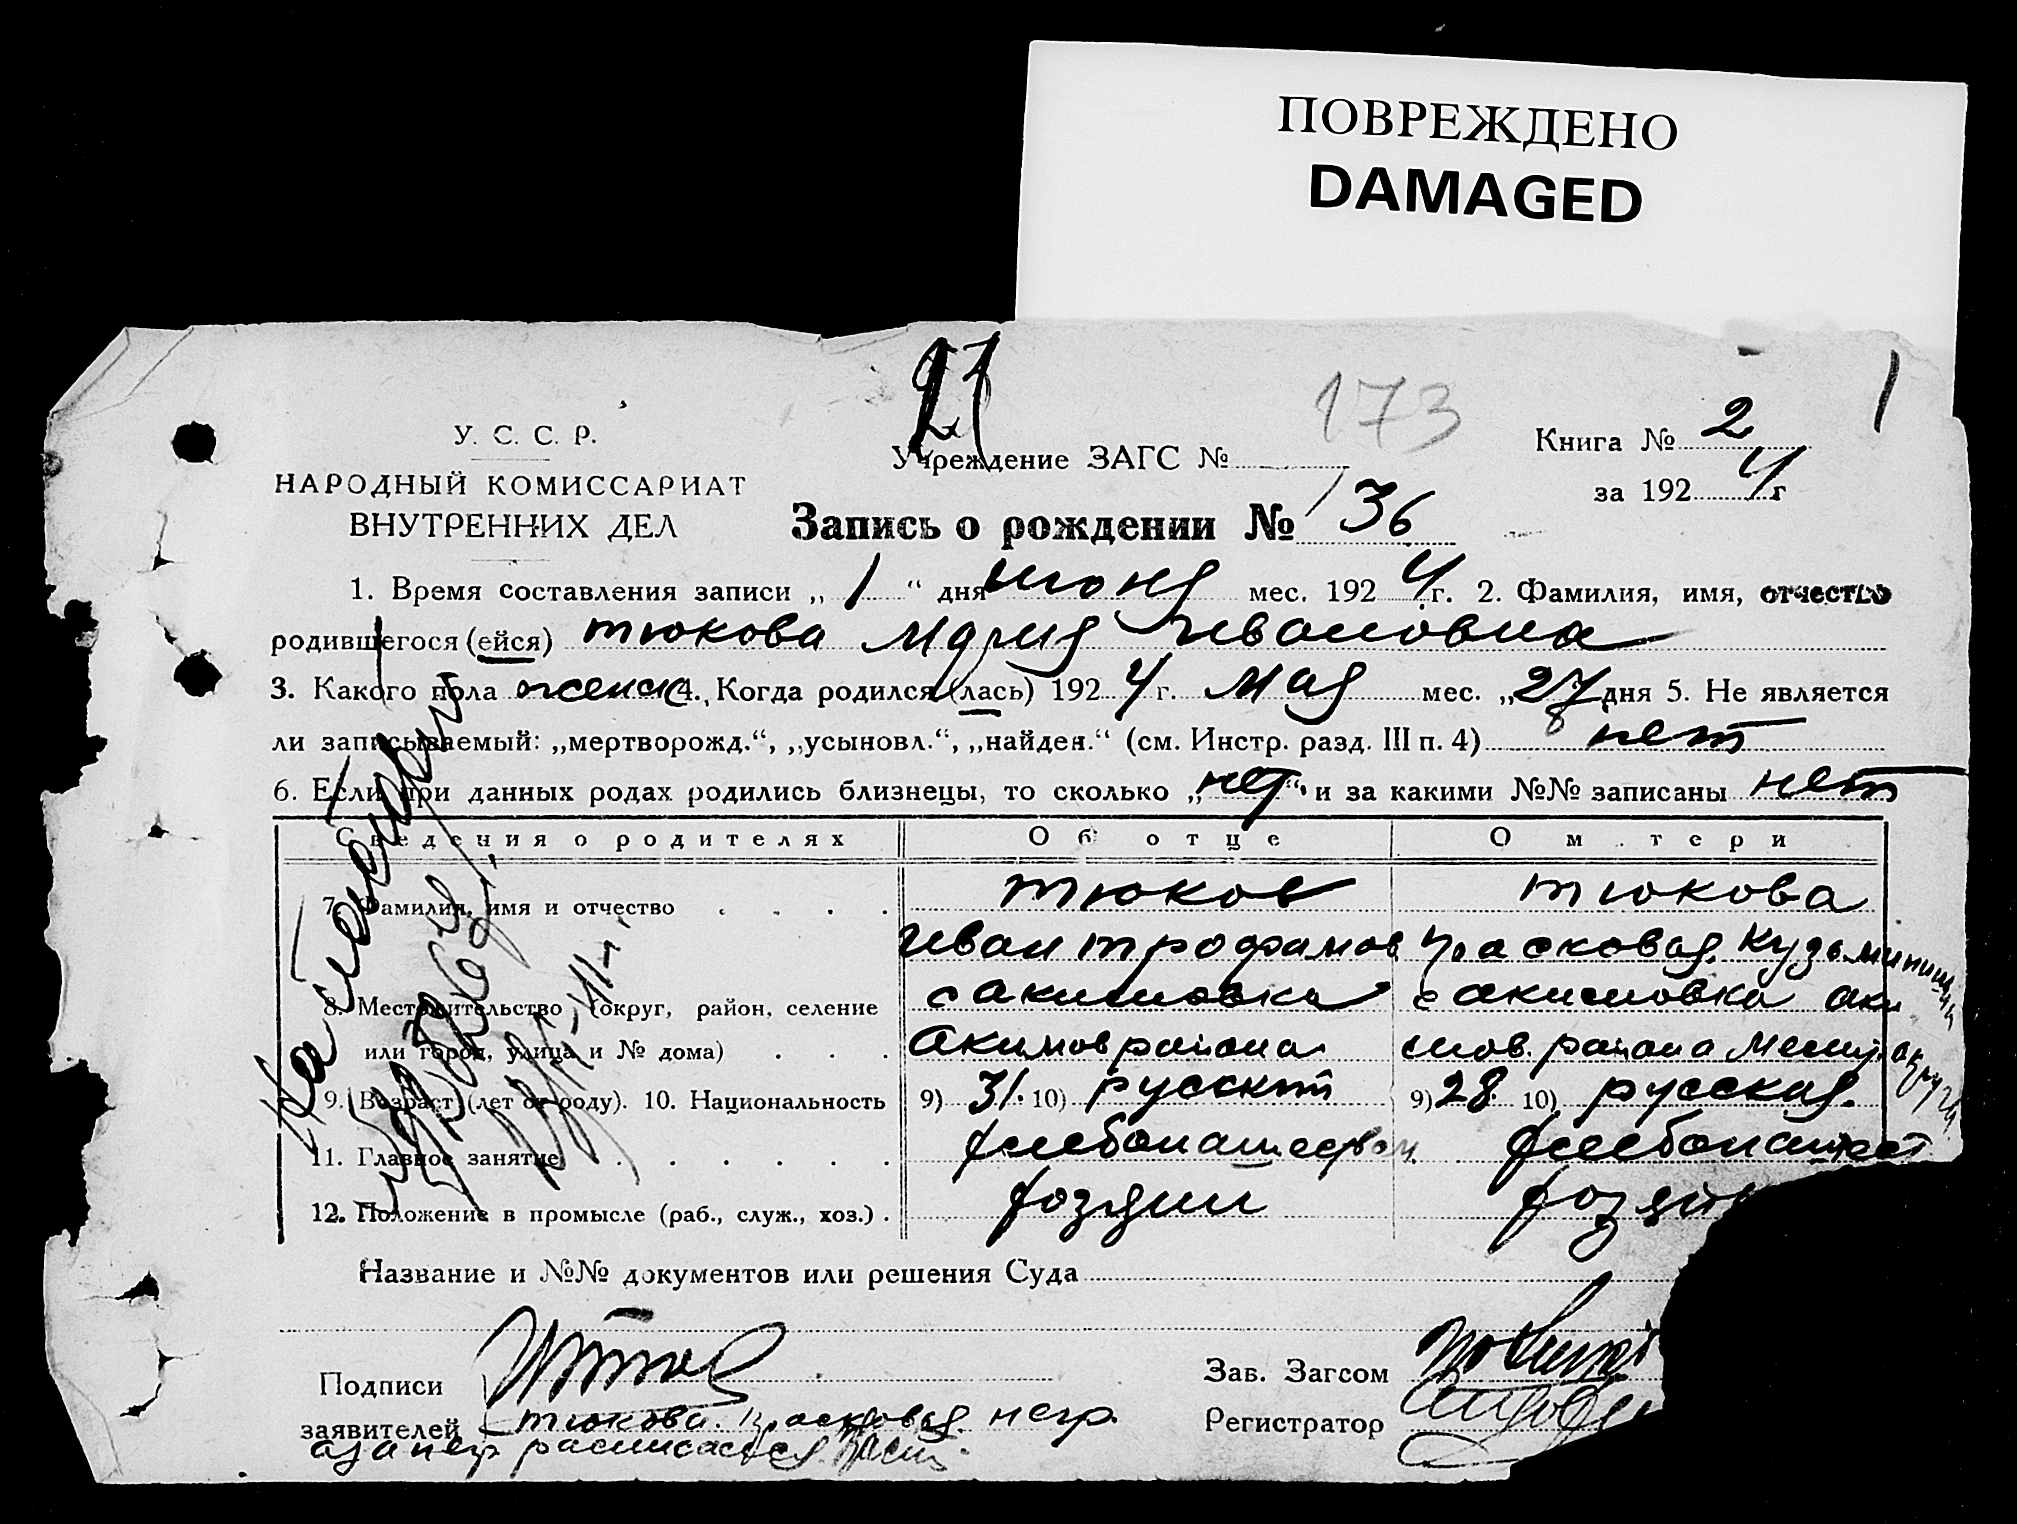 ПОВРЕЖДЕНО
DAMAGED
1
173
У. С. С. Р.
НАРОДНЫЙ КОМИССАРИАТ
ВНУТРЕННИХ ДЕЛ
Учреждение ЗАГС №
Книга № 2
за 1924 г
Запись о рождении № 136
1. Время составления записи „ 1 “ дня июня мес. 1924 г. 2. Фамилия, имя, отчество
родившегося (ейся) тюкова Мария Ивановна
3. Какого пола женск 4. Когда родился (лась) 1924 г. Мая мес. „ 27 дня 5. Не является
ли записываемый: „мертворожд.“, „усыновл.“, „найден.“ (см. Инстр. разд. III п. 4) нет
6. Если при данных родах родились близнецы, то сколько „ нет “ и за какими №№ записаны нет
Сведения о родителях Об отце О м тери
7. Фамилия, имя и отчество тюков тюкова
Иван трофимов Прасковая Кузьминишна
8. Местожительство (округ, район, селение с акимовка с акимовка аки
или город, улица и № дома) Акимов района мов. района Мелит округа
9. Возраст (лет от роду). 10. Национальность 9) 31. 10) русский 9) 28. 10) русская.
11. Главное занятие хлебопашеством хлебопашест
12. Положение в промысле (раб., служ., хоз.) хозяин хозяи
Название и №№ документов или решения Суда
Подписи
Зав. Загсом
заявителей тюкова Прасковая негр.
Регистратор
аза негр расписался